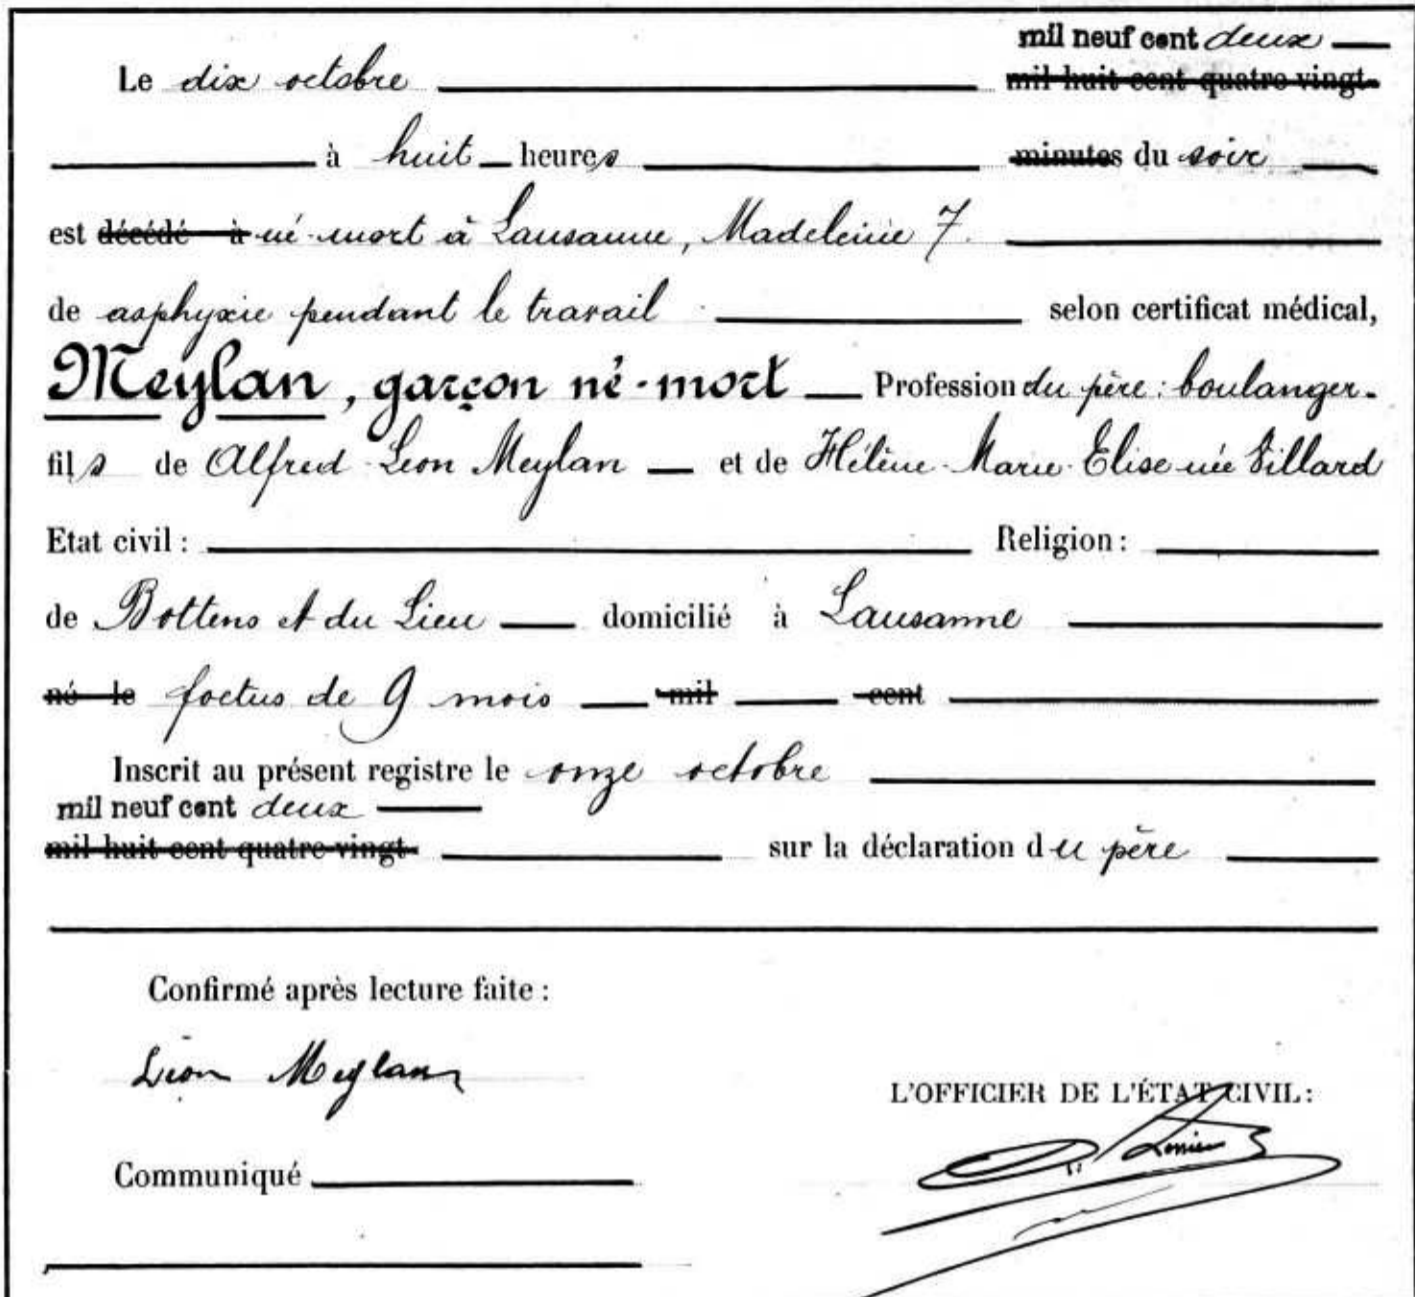 mil neuf cent deux
Le dix octobre mil huit cent quatre-vingt-
à huit heures minutes du soir
est décédé à né-mort à Lausanne, Madeleine 7.
de asphyxie pendant le travail selon certificat médical,
Meylan, garçon né-mort Profession du père: boulanger.
fils de Alfred-Léon Meylan et de Hélène-Marie-Elise née Villard
Etat civil: Religion:
de Bottens et du Lieu domicilié à Lausanne
né le foetus de 9 mois mil cent
Inscrit au présent registre le onze octobre
mil neuf cent deux
mil huit cent quatre-vingt- sur la déclaration du père
Confirmé après lecture faite:
Léon Meylan
L'OFFICIER DE L'ÉTAT CIVIL:
Communiqué